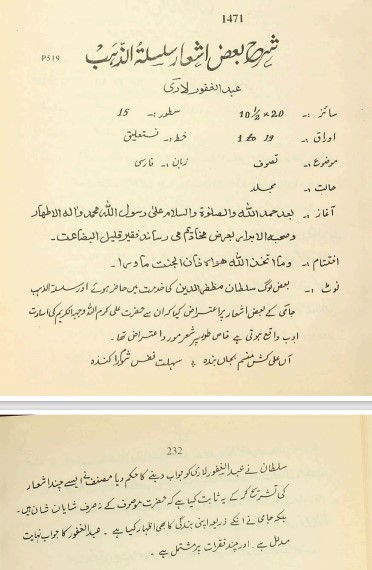 1471
شرح بعض اشعار سلسلۃ الذہب
P519
عبد الغفور لاری
سائز :- 20 × 10½ سطور :- 15
اوراق :- 1 to 19 خط :- نستعلیق
موضوع :- تصوف زبان :- فارسی
حالت :- مجلد
آغاز :- بعد حمد اللہ والصلوٰۃ والسلام علیٰ رسول اللہ محمد واٰلہ الاطہار
وصحبہ الابرار بعرض مخادیم می رساند فقیر قلیل البضاعت۔
اختتام :- وما تخن اللہ هواه فان الجنت ماویٰ۔
نوٹ :- بعض لوگ سلطان مظفر الدین کی خدمت میں حاضر ہوئے اور سلسلۃ الذہب
جامی کے بعض اشعار پر اعتراض کیا کہ ان سے حضرت علی کرم اللہ وجہہ الکریم کی اسارت
ادب واقع ہوتی ہے خاص طور پر شعر مورد اعتراض تھا۔
آں علی کش منم بجاں بندہ سبلت نفس شوم را کندہ
232
سلطان نے عبد الغفور لاری کو جواب دینے کا حکم دیا مصنف نے ایسے چند اشعار
کی تشریح کر کے یہ ثابت کیا ہے کہ حضرت موصوف کے نہ صرف شایان شان ہیں۔
بلکہ جامی نے انکے ذریعہ اپنی بندگی کا بھی اظہار کیا ہے۔ عبد الغفور کا جواب نہایت
مدلل ہے۔ اور چند فقرات پر مشتمل ہے۔